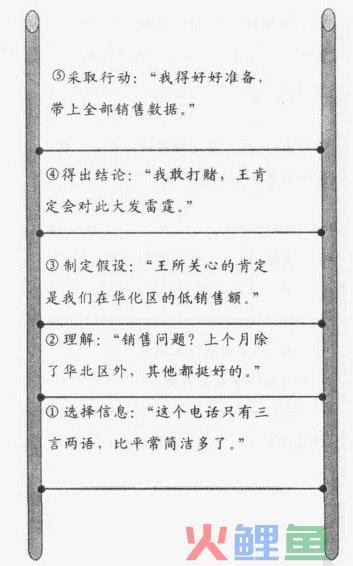 ⑤采取行动：“我得好好准备，
带上全部销售数据。”
④得出结论：“我敢打赌，王肯
定会对此大发雷霆。”
③制定假设：“王所关心的肯定
是我们在华化区的低销售额。”
②理解：“销售问题？上个月除
了华北区外，其他都挺好的。”
①选择信息：“这个电话只有三
言两语，比平常简洁多了。”
火鲤鱼